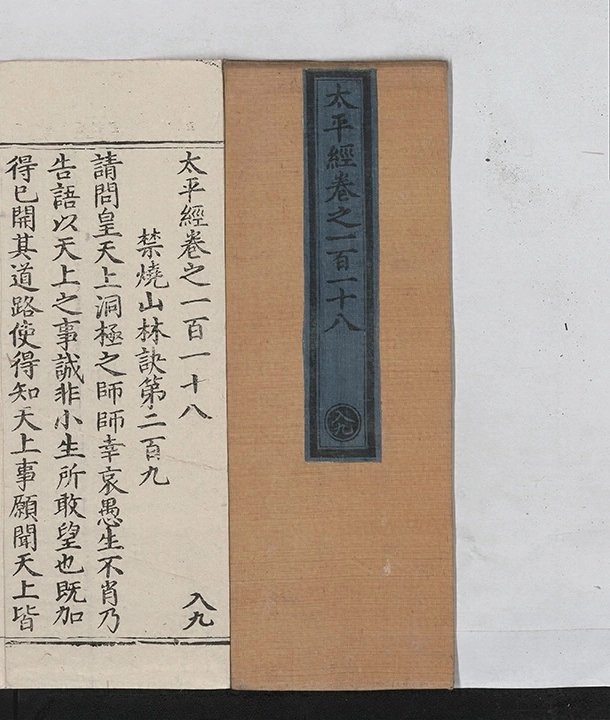 太平經卷之一百一十八
入九
太平經卷之一百一十八
入九
禁燒山林訣第二百九
請問皇天上洞極之師師幸哀愚生不肖乃
告語以天上之事誠非小生所敢望也既加
得已開其道路使得知天上事願聞天上皆